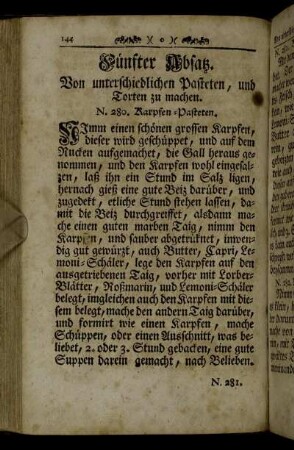 144
Fünfter Absatz.
Von unterschiedlichen Pasteten, und
Torten zu machen.
N. 280. Karpfen-Pasteten.
NImm einen schönen grossen Karpfen,
dieser wird geschüppet, und auf dem
Rucken aufgemachet, die Gall heraus ge-
nommen, und den Karpfen wohl eingesal-
zen, laß ihn ein Stund im Salz ligen,
hernach gieß eine gute Beiz darüber, und
zugedekt, etliche Stund stehen lassen, da-
mit die Beiz durchgreiffet, alsdann ma-
che einen guten marben Taig, nimm den
Karpfen, und sauber abgetrüknet, inwen-
dig gut gewürzt, auch Butter, Capri, Le-
moni-Schäler, lege den Karpfen auf den
ausgetriebenen Taig, vorher mit Lorber-
Blätter, Roßmarin, und Lemoni-Schäler
belegt, imgleichen auch den Karpfen mit die-
sem belegt, mache den andern Taig darüber,
und formirt wie einen Karpfen, mache
Schüppen, oder einen Ausschnitt, was be-
liebet, 2. oder 3. Stund gebacken, eine gute
Suppen darein gemacht, nach Belieben.
N. 281.